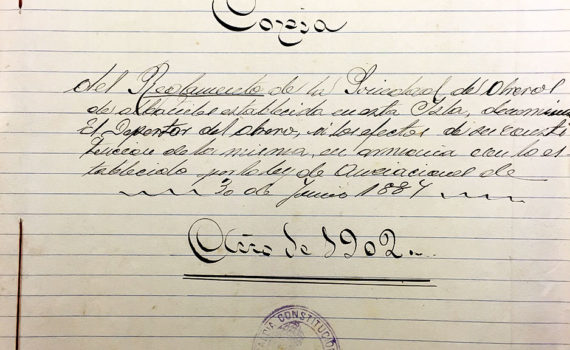 Copia
del Reglamento de la Sociedad de obreros
de albañiles establecida en esta Isla, denomina
El Despertar del obrero, á los efectos de su consti
tucion de la misma, en armonia con lo es
tablecido por la ley de Asociaciones de
30 de Junio 1887
Año de 1902.
ALDIA CONSTITUCION